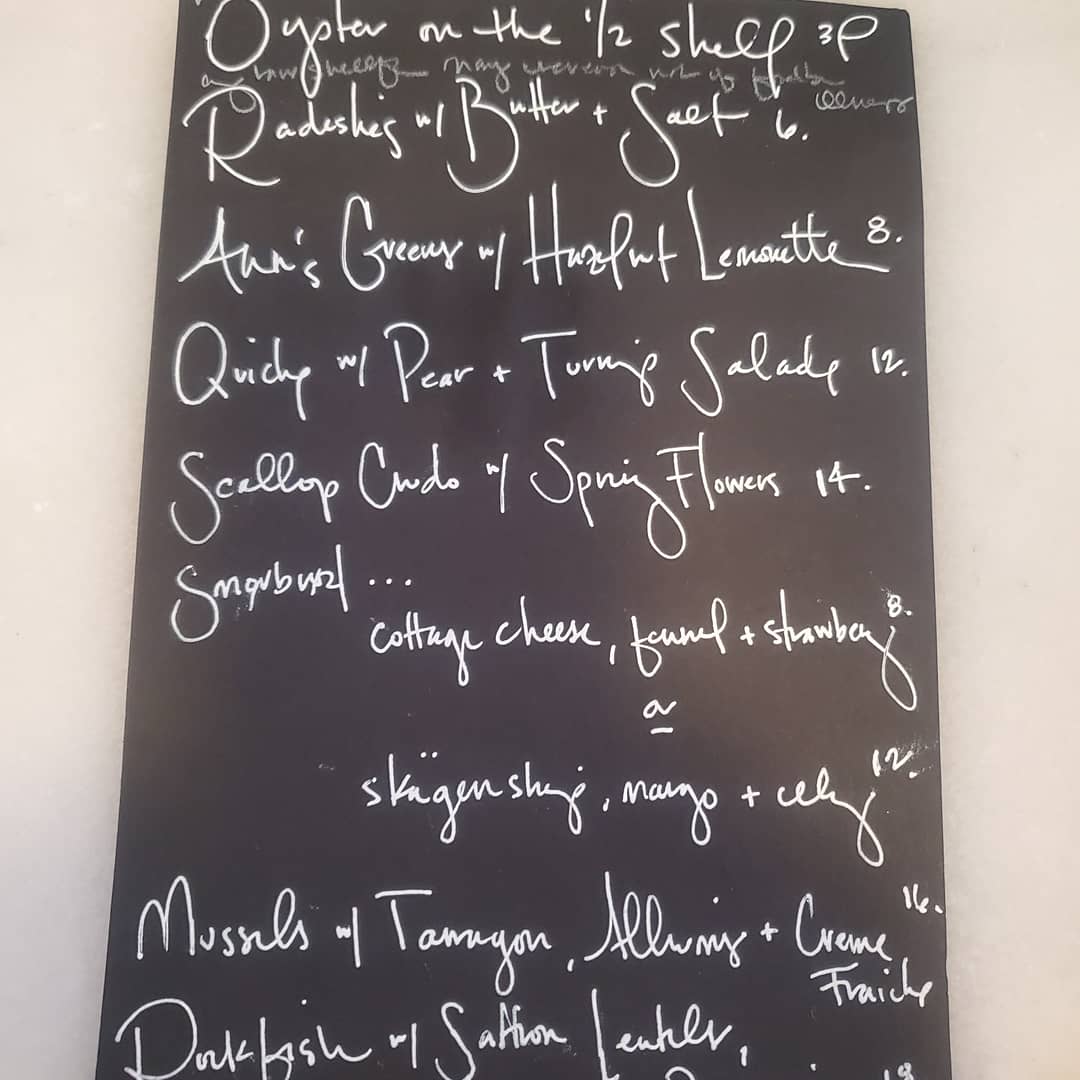 Oyster on the 1/2 shell 3P
may not
illness
Radeshes w/ Butter + Salt 6.
Ann's Greens w/ Hazelnut Lemonette 8.
Quiche w/ Pear + Turnip Salade 12.
Scallop Crudo w/ Spring Flowers 14.
...
8.
cottage cheese, fennel + strawberry
or
12.
skägen shrimp, mango + celery
16.
Mussels w/ Tarragon, + Creme
Fraiche
w/ Saffron Lentils,